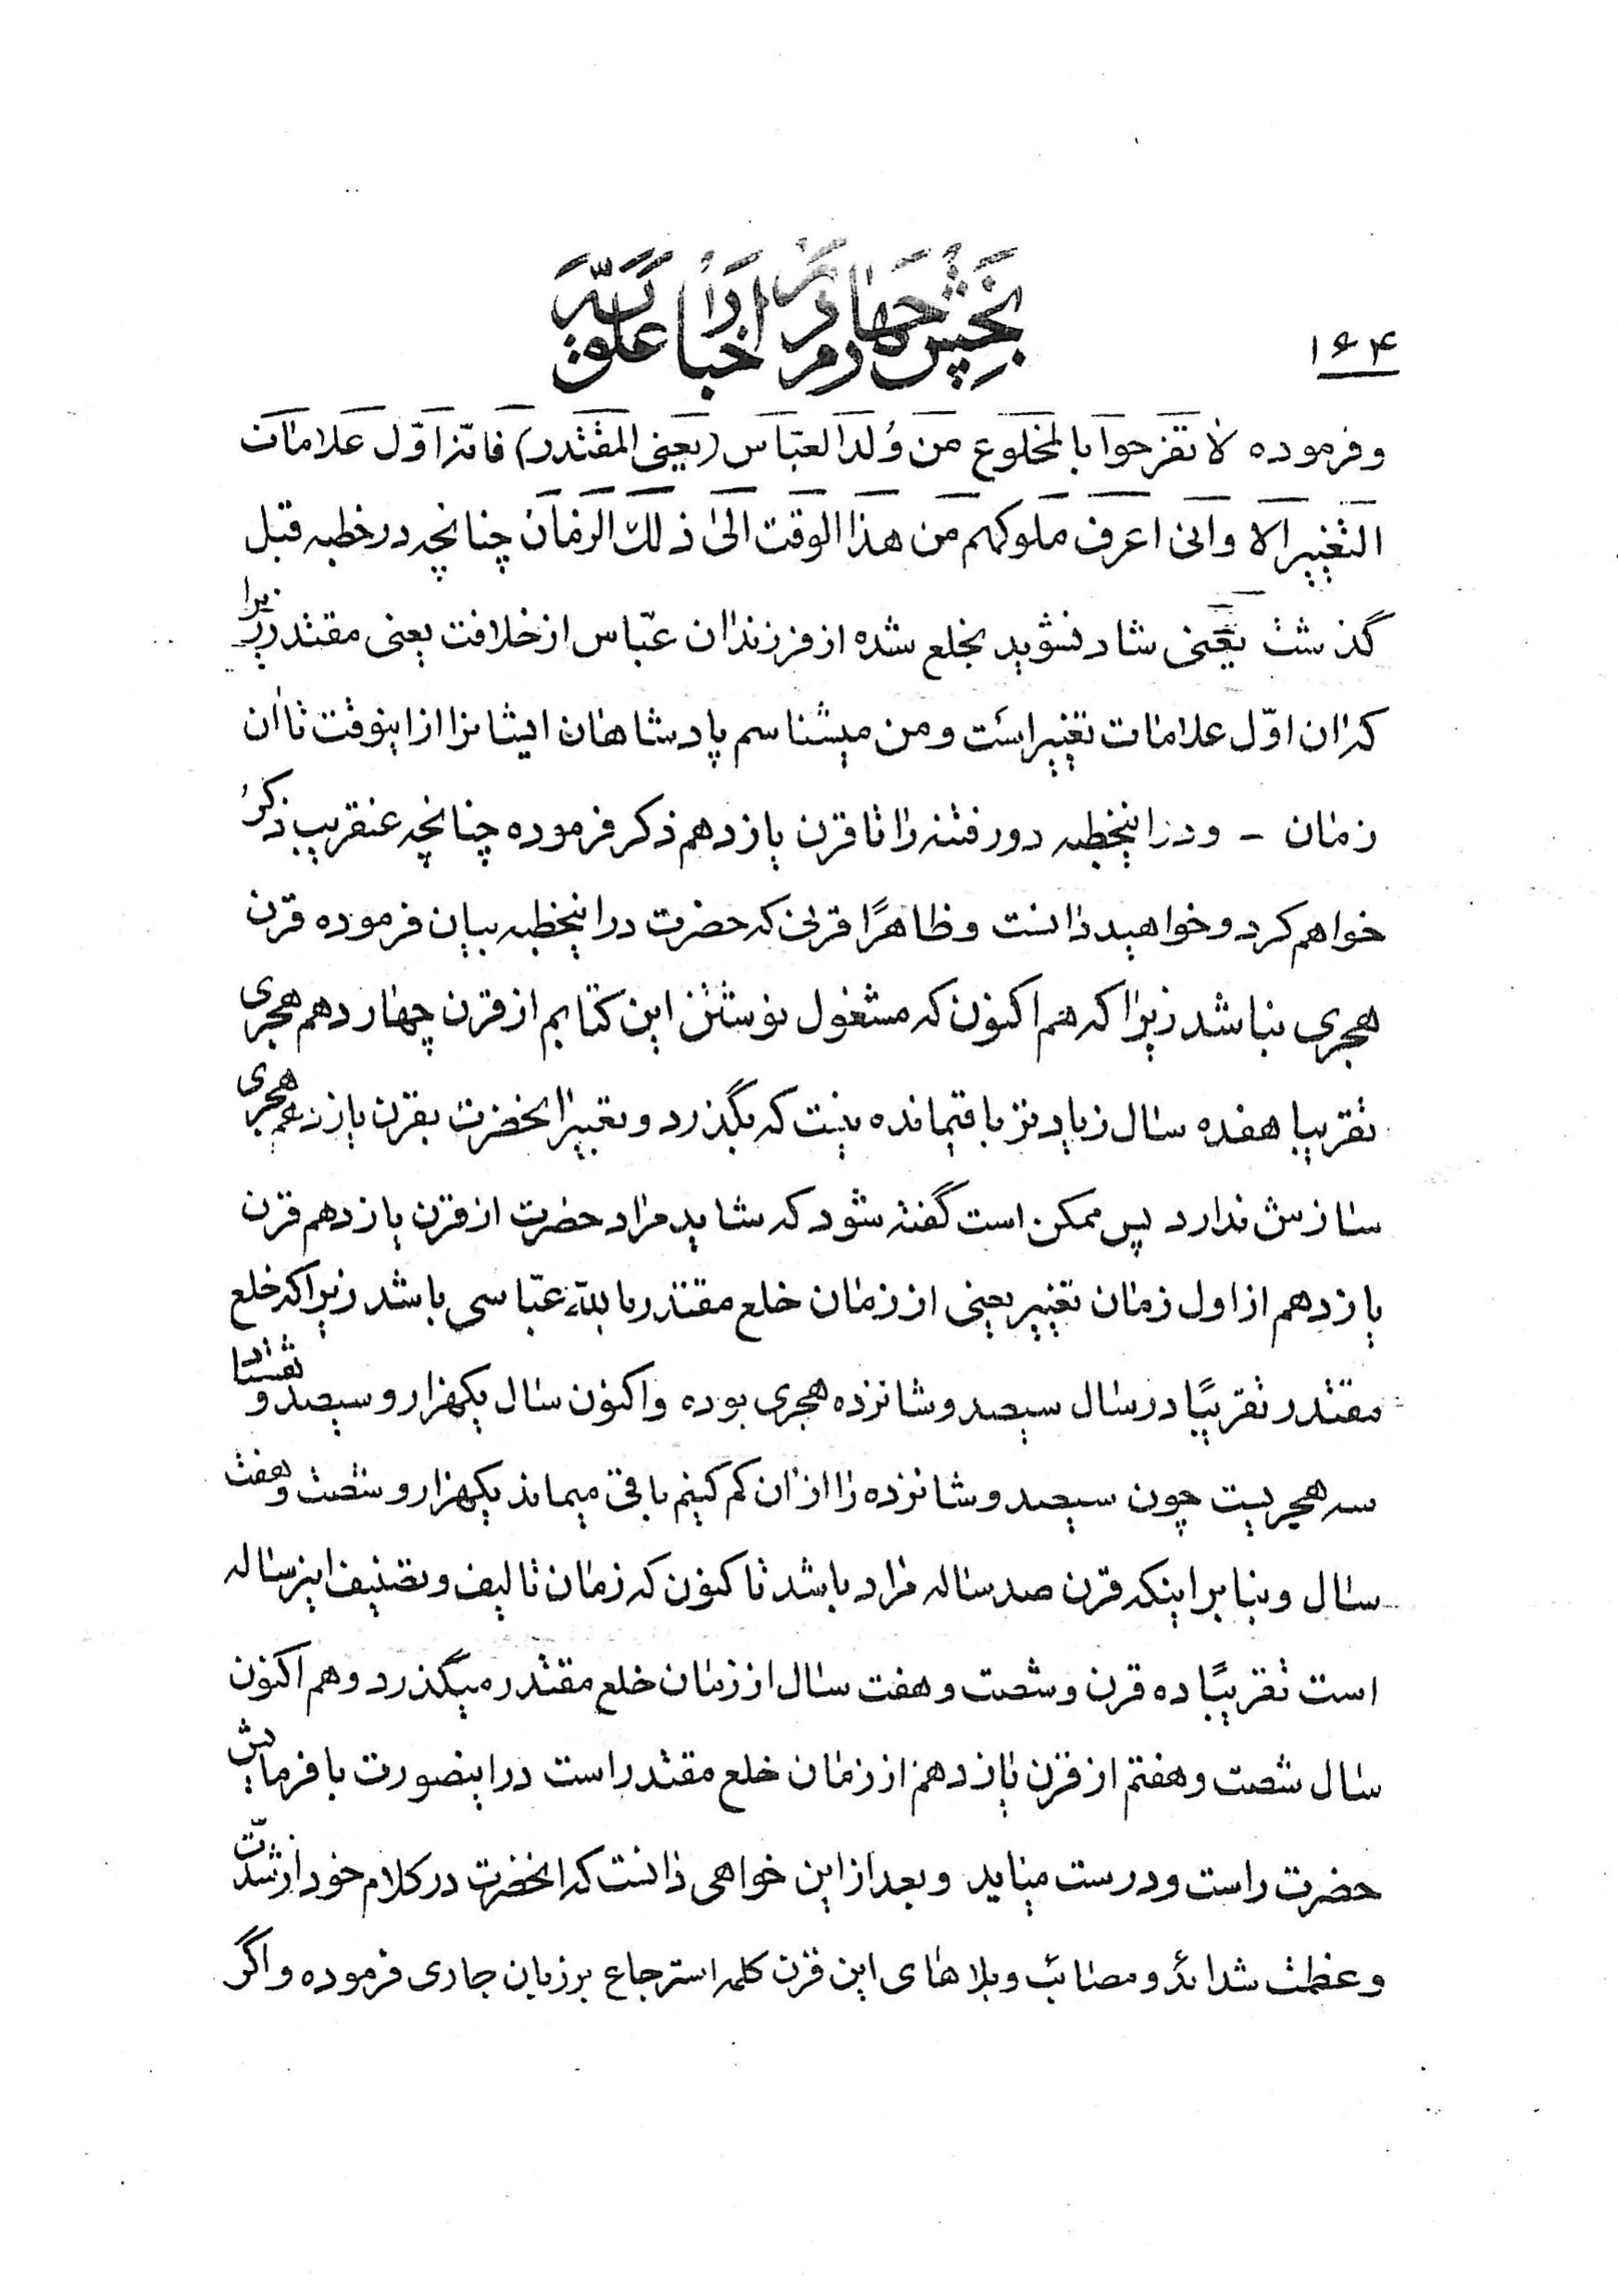 ۱۶۴
بخش چهارم در اخبار علویه
و فرموده لا تفرحوا بالمخلوع من ولد العباس (یعنی المقتدر) فانه اول علامات
التغییر الا و انی اعرف ملوکهم من هذا الوقت الی ذلک الزمان چنانچه در خطبه قبل
گذشت یعنی شاد نشوید بخلع شده از فرزندان عبّاس از خلافت یعنی مقتدر زیرا
که ان اوّل علامات تغییر است و من میشناسم پادشاهان ایشانرا از اینوقت تا ان
زمان - و در اینخطبه دور فتنه را تا قرن یازدهم ذکر فرموده چنانچه عنقریب ذکر
خواهم کرد و خواهید دانست و ظاهرًا قرنی که حضرت در اینخطبه بیان فرموده قرن
هجری نباشد زیرا که هم اکنون که مشغول نوشتن این کتابم از قرن چهاردهم هجری
تقریبا هفده سال زیادتر باقیمانده نیست که بگذرد و تعبیر انحضرت بقرن یازدهم هجری
سازش ندارد پس ممکن است گفته شود که شاید مراد حضرت از قرن یازدهم قرن
یازدهم از اول زمان تغییر یعنی از زمان خلع مقتدر بالله عبّاسی باشد زیرا که خلع
مقتدر تقریبًا در سال سیصد و شانزده هجری بوده و اکنون سال یکهزار و سیصد و هشتاد
سه هجریست چون سیصد و شانزده را از ان کم کنیم باقی میماند یکهزار و شصت و هفت
سال و بنابر اینکه قرن صد ساله مراد باشد تا کنون که زمان تالیف و تصنیف اینرساله
است تقریبًا ده قرن و شصت و هفت سال از زمان خلع مقتدر میگذرد و هم اکنون
سال شصت و هفتم از قرن یازدهم از زمان خلع مقتدر است در اینصورت با فرمایش
حضرت راست و درست میاید و بعد از این خواهی دانست که انحضرت در کلام خود از شدّت
و عظمت شدائد و مصائب و بلاهای این قرن کلمه استرجاع بر زبان جاری فرموده و اگر